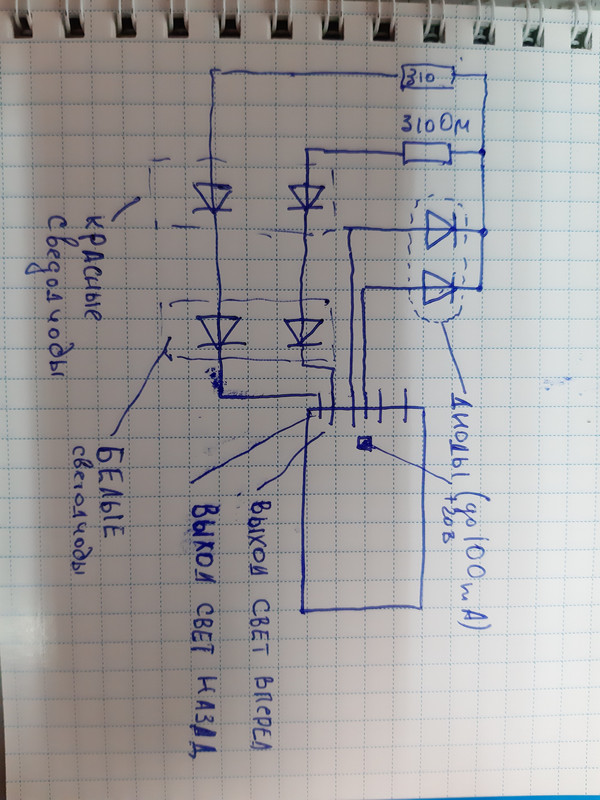 310
310 Ом
КРАСНЫЕ
СВЕДОДИОДЫ
БЕЛЫЕ
СВЕТОДИОДЫ
ДИОДЫ (до 100 mA)
+20В
ВЫХОД СВЕТ ВПЕРЕД
ВЫХОД СВЕТ НАЗАД